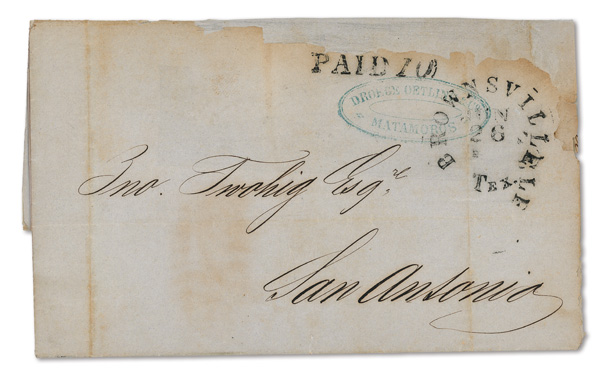 PAID 10
DROEGE OETLING
MATAMOROS
BROWNSVILLE
26
TEX.
Jno. Twohig Esqre.
San Antonio